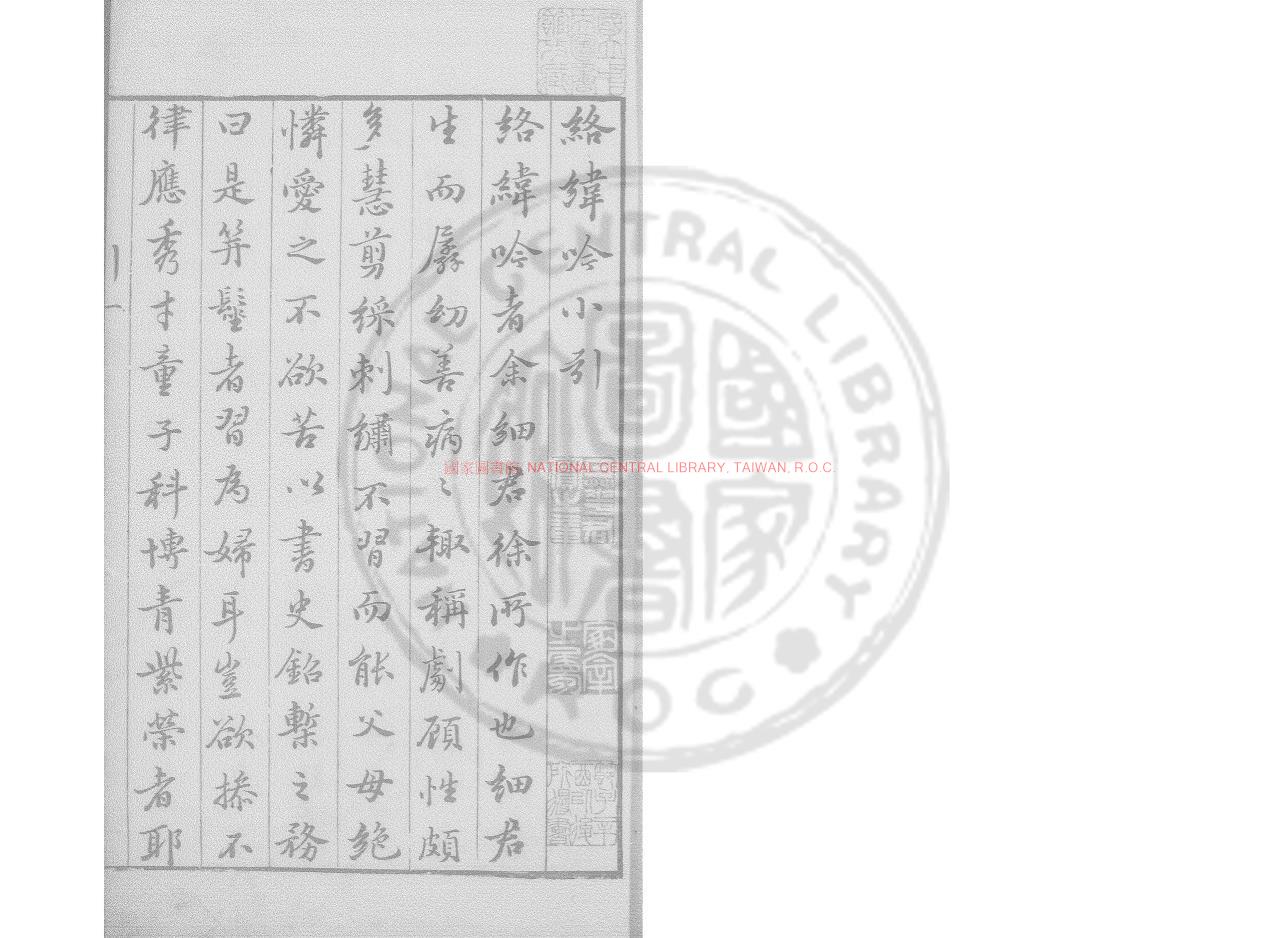 絡緯吟小引
絡緯吟者余細君徐所作也細君
生而孱幼善病〻輒稱劇顧性頗
多慧剪綵刺繡不習而能父母絶
憐愛之不欲苦以書史鉛槧之務
曰是笄髽者習為婦耳豈欲摻不
律應秀才童子科博青紫榮者耶
引
一
國家圖書館 NATIONAL CENTRAL LIBRARY, TAIWAN, R.O.C.
NATIONAL CENTRAL LIBRARY
R.O.C
國家圖書